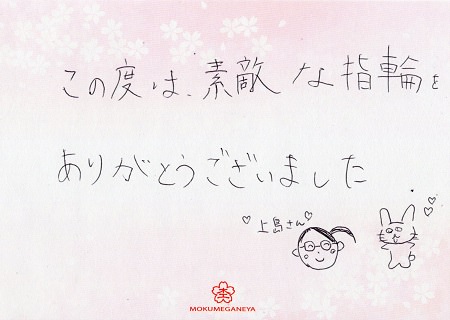 この度は、素敵な指輪を
ありがとうございました
上島さん
MOKUMEGANEYA